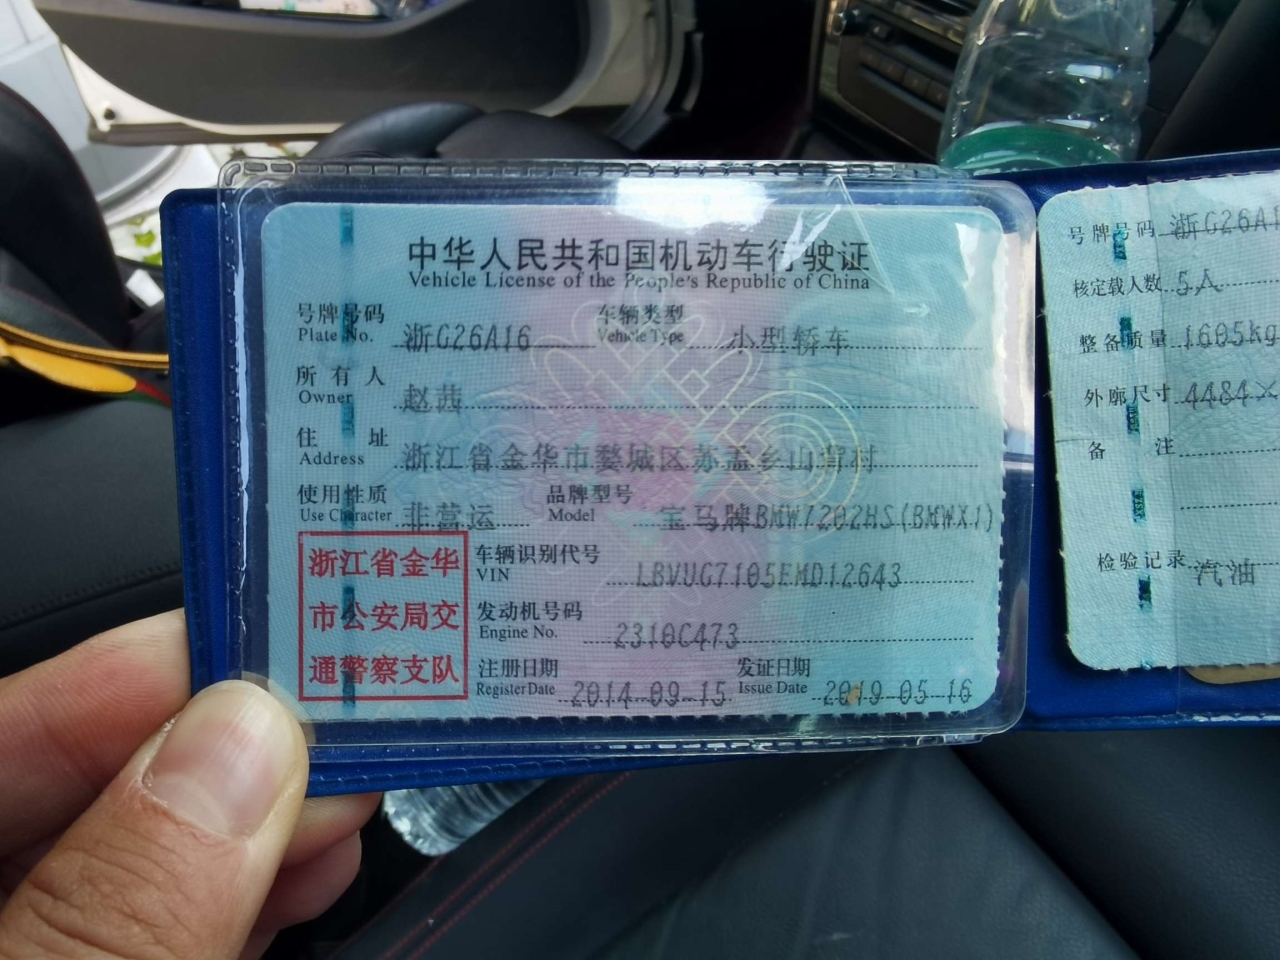 中华人民共和国机动车行驶证
Vehicle License of the People's Republic of China
号牌号码 浙G26A16 车辆类型 小型轿车
Plate No. Vehicle Type
所有人 赵茜
Owner
住址 浙江省金华市婺城区苏孟乡山背村
Address
使用性质 非营运 品牌型号 宝马牌BMW7202HS(BMWX1)
Use Character Model
浙江省金华
市公安局交
通警察支队
车辆识别代号 LBVUG7105EMD12643
VIN
发动机号码 2310C473
Engine No.
注册日期 2014-09-15 发证日期 2019-05-16
Register Date Issue Date
号牌号码 浙G26A1
核定载人数 5人
整备质量 1605kg
外廓尺寸 4484×
备注
检验记录 汽油